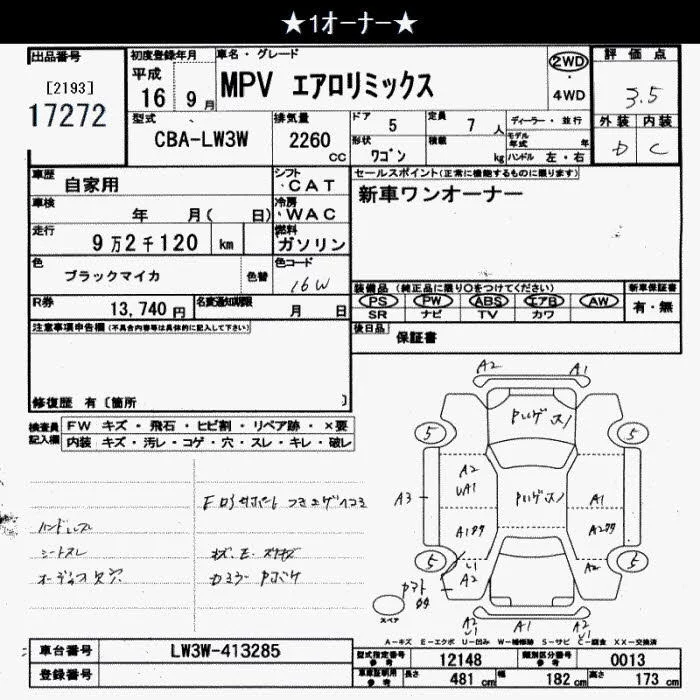 ★1ｵｰﾅｰ★
出品番号
[2193]
17272
初度登録年月
平成
16 9月
車名・グレード
MPV エアロリミックス
2WD
・
4WD
評価点
3.5
外装 内装
D C
型式
CBA-LW3W
排気量
2260
cc
ドア 5
定員 7 人
形状 ワゴン
積載 kg
ディーラー・並行
モデル年式 年
ハンドル 左・右
車歴 自家用
シフト ・CAT
車検 年 月( 日)
冷房 ・WAC
走行 9万2千120 km
燃料 ガソリン
色 ブラックマイカ 色替
色コード 16W
R券 13,740円
名変通知期限 月 日
セールスポイント(正常に機能するものに限ります)
新車ワンオーナー
装備品(純正品に限り○をつけてください)
新車保証書
PS PW ABS エアB AW
SR ナビ TV カワ
有・無
後日品 保証書
注意事項申告欄(不具合内容等は具体的に記入して下さい)
修復歴 有〔箇所 〕
検査員記入欄
FW キズ・飛石・ヒビ割・リペア跡・×要
内装 キズ・汚レ・コゲ・穴・スレ・キレ・破レ
ハンドルスレ
シートスレ
A2 A1
5 5
A2
A3
A1
5 5
A2
A2
スペア
A-キズ E-エクボ U-凹み W-補修跡 S-サビ C-腐食 XX-交換済
車台番号 LW3W-413285
登録番号
型式指定番号 参考 12148
類別区分番号 参考 0013
車庫証明用 参考 長さ 481 cm 幅 182 cm 高さ 173 cm